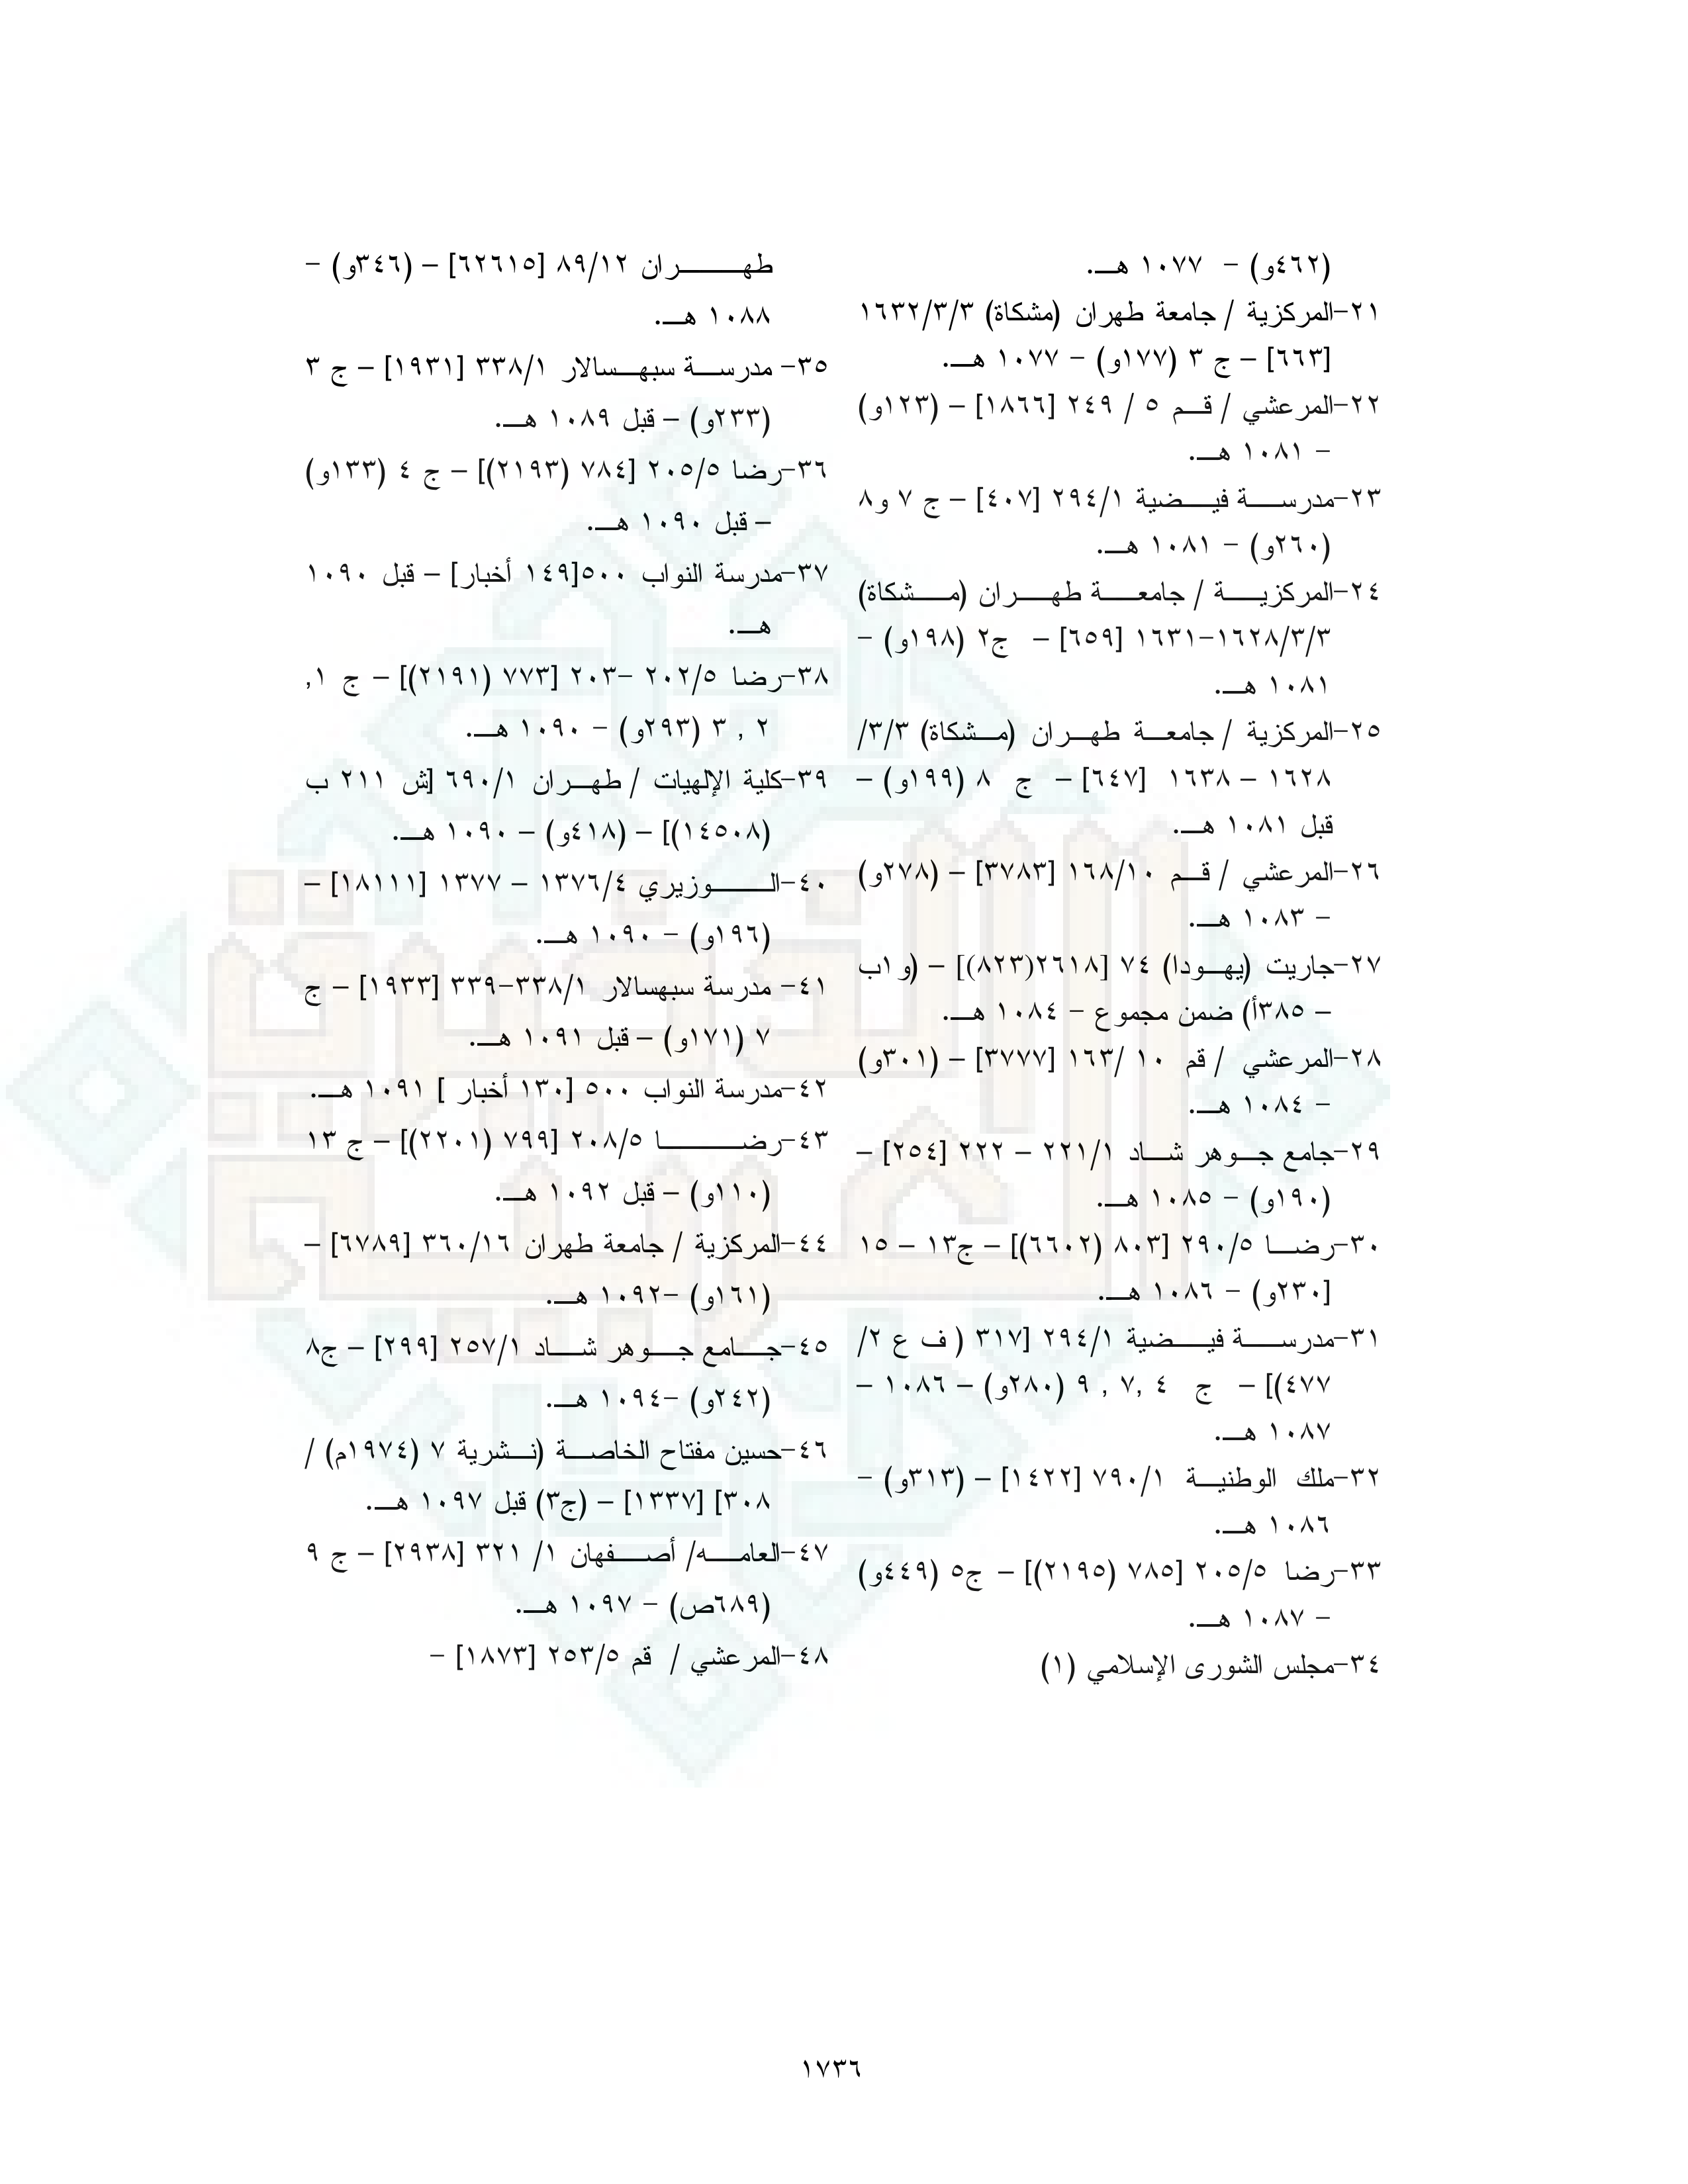 (٤٦٢و) - ١٠٧٧ هـ.
٢١-المركزية / جامعة طهران (مشكاة) ١٦٣٢/٣/٣
[٦٦٣] – ج ٣ (١٧٧و) - ١٠٧٧ هـ.
٢٢-المرعشي / قم ٥ / ٢٤٩ [١٨٦٦] – (١٢٣و)
- ١٠٨١ هـ.
٢٣-مدرسة فيضية ٢٩٤/١ [٤٠٧] – ج ٧ و٨
(٢٦٠و) - ١٠٨١ هـ.
٢٤-المركزية / جامعة طهران (مشكاة)
١٦٢٨/٣/٣-١٦٣١ [٦٥٩] – ج٢ (١٩٨و) -
١٠٨١ هـ.
٢٥-المركزية / جامعة طهران (مشكاة) ٣/٣/
١٦٢٨ – ١٦٣٨ [٦٤٧] – ج ٨ (١٩٩و) –
قبل ١٠٨١ هـ.
٢٦-المرعشي / قم ١٦٨/١٠ [٣٧٨٣] – (٢٧٨و)
- ١٠٨٣ هـ.
٢٧-جاريت (يهودا) ٧٤ [٢٦١٨(٨٢٣)] – (و١ب
– ٣٨٥أ) ضمن مجموع - ١٠٨٤ هـ.
٢٨-المرعشي / قم ١٠ /١٦٣ [٣٧٧٧] – (٣٠١و)
- ١٠٨٤ هـ.
٢٩-جامع جوهر شاد ٢٢١/١ – ٢٢٢ [٢٥٤] –
(١٩٠و) - ١٠٨٥ هـ.
٣٠-رضا ٢٩٠/٥ [٨٠٣ (٦٦٠٢)] – ج١٣ – ١٥
[٢٣٠و) - ١٠٨٦ هـ.
٣١-مدرسة فيضية ٢٩٤/١ [٣١٧ ( ف ع ٢/
٤٧٧)] – ج ٤ ,٧ , ٩ (٢٨٠و) – ١٠٨٦ –
١٠٨٧ هـ.
٣٢-ملك الوطنية ٧٩٠/١ [١٤٢٢] – (٣١٣و) -
١٠٨٦ هـ.
٣٣-رضا ٢٠٥/٥ [٧٨٥ (٢١٩٥)] – ج٥ (٤٤٩و)
- ١٠٨٧ هـ.
٣٤-مجلس الشورى الإسلامي (١)
طهران ٨٩/١٢ [٦٢٦١٥] – (٣٤٦و) -
١٠٨٨ هـ.
٣٥- مدرسة سبهسالار ٣٣٨/١ [١٩٣١] – ج ٣
(٢٣٣و) – قبل ١٠٨٩ هـ.
٣٦-رضا ٢٠٥/٥ [٧٨٤ (٢١٩٣)] – ج ٤ (١٣٣و)
– قبل ١٠٩٠ هـ.
٣٧-مدرسة النواب ٥٠٠[١٤٩ أخبار] – قبل ١٠٩٠
هـ.
٣٨-رضا ٢٠٢/٥ -٢٠٣ [٧٧٣ (٢١٩١)] – ج ١,
٢ , ٣ (٢٩٣و) - ١٠٩٠ هـ.
٣٩-كلية الإلهيات / طهران ٦٩٠/١ [ش ٢١١ ب
(١٤٥٠٨)] – (٤١٨و) – ١٠٩٠ هـ.
٤٠-الوزيري ١٣٧٦/٤ – ١٣٧٧ [١٨١١١] –
(١٩٦و) - ١٠٩٠ هـ.
٤١- مدرسة سبهسالار ٣٣٨/١-٣٣٩ [١٩٣٣] – ج
٧ (١٧١و) – قبل ١٠٩١ هـ.
٤٢-مدرسة النواب ٥٠٠ [١٣٠ أخبار ] ١٠٩١ هـ.
٤٣-رضا ٢٠٨/٥ [٧٩٩ (٢٢٠١)] – ج ١٣
(١١٠و) – قبل ١٠٩٢ هـ.
٤٤-المركزية / جامعة طهران ٣٦٠/١٦ [٦٧٨٩] –
(١٦١و) -١٠٩٢ هـ.
٤٥-جامع جوهر شاد ٢٥٧/١ [٢٩٩] – ج٨
(٢٤٢و) -١٠٩٤ هـ.
٤٦-حسين مفتاح الخاصة (نشرية ٧ (١٩٧٤م) /
٣٠٨] [١٣٣٧] – (ج٣) قبل ١٠٩٧ هـ.
٤٧-العامه/ أصفهان ١/ ٣٢١ [٢٩٣٨] – ج ٩
(٦٨٩ص) - ١٠٩٧ هـ.
٤٨-المرعشي / قم ٢٥٣/٥ [١٨٧٣] -
١٧٣٦